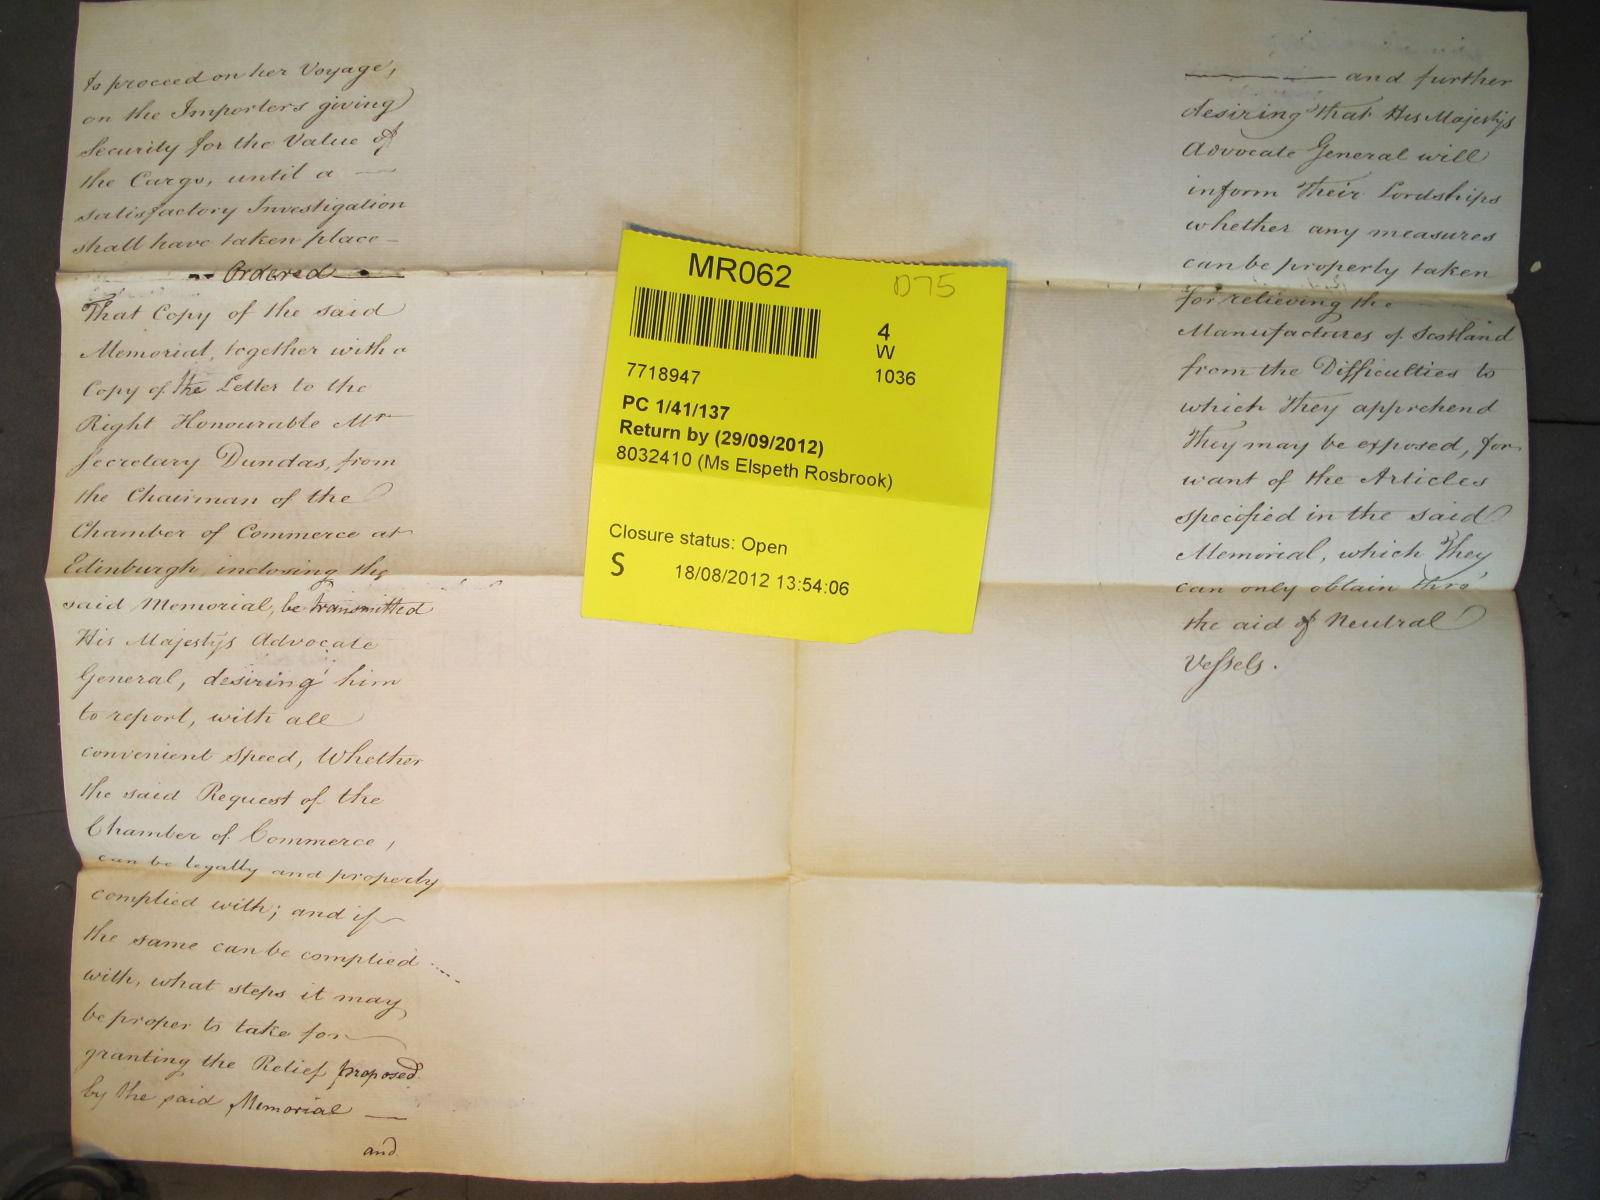 to proceed on her Voyage,
on the Importers giving
Security for the Value of
the Cargo, until a —
satisfactory Investigation
shall have taken place —
Ordered
That Copy of the said
Memorial, together with a
Copy of the Letter to the
Right Honourable Mr
Secretary Dundas, from
the Chairman of the
Chamber of Commerce at
Edinburgh, inclosing the
said Memorial, be transmitted
His Majesty's Advocate
General, desiring him
to report, with all
convenient speed, Whether
the said Request of the
Chamber of Commerce,
can be legally and properly
complied with; and if
the same can be complied
with, what steps it may
be proper to take for
granting the Relief proposed
by the said Memorial —
and
MR062
D75
4
W
1036
7718947
PC 1/41/137
Return by (29/09/2012)
8032410 (Ms Elspeth Rosbrook)
Closure status: Open
S
18/08/2012 13:54:06
— and further
desiring that His Majesty's
Advocate General will
inform their Lordships
whether any measures
can be properly taken
for relieving the
Manufactures of Scotland
from the Difficulties to
which They apprehend
They may be exposed, for
want of the Articles
specified in the said
Memorial, which They
can only obtain thro'
the aid of Neutral
Vessels.